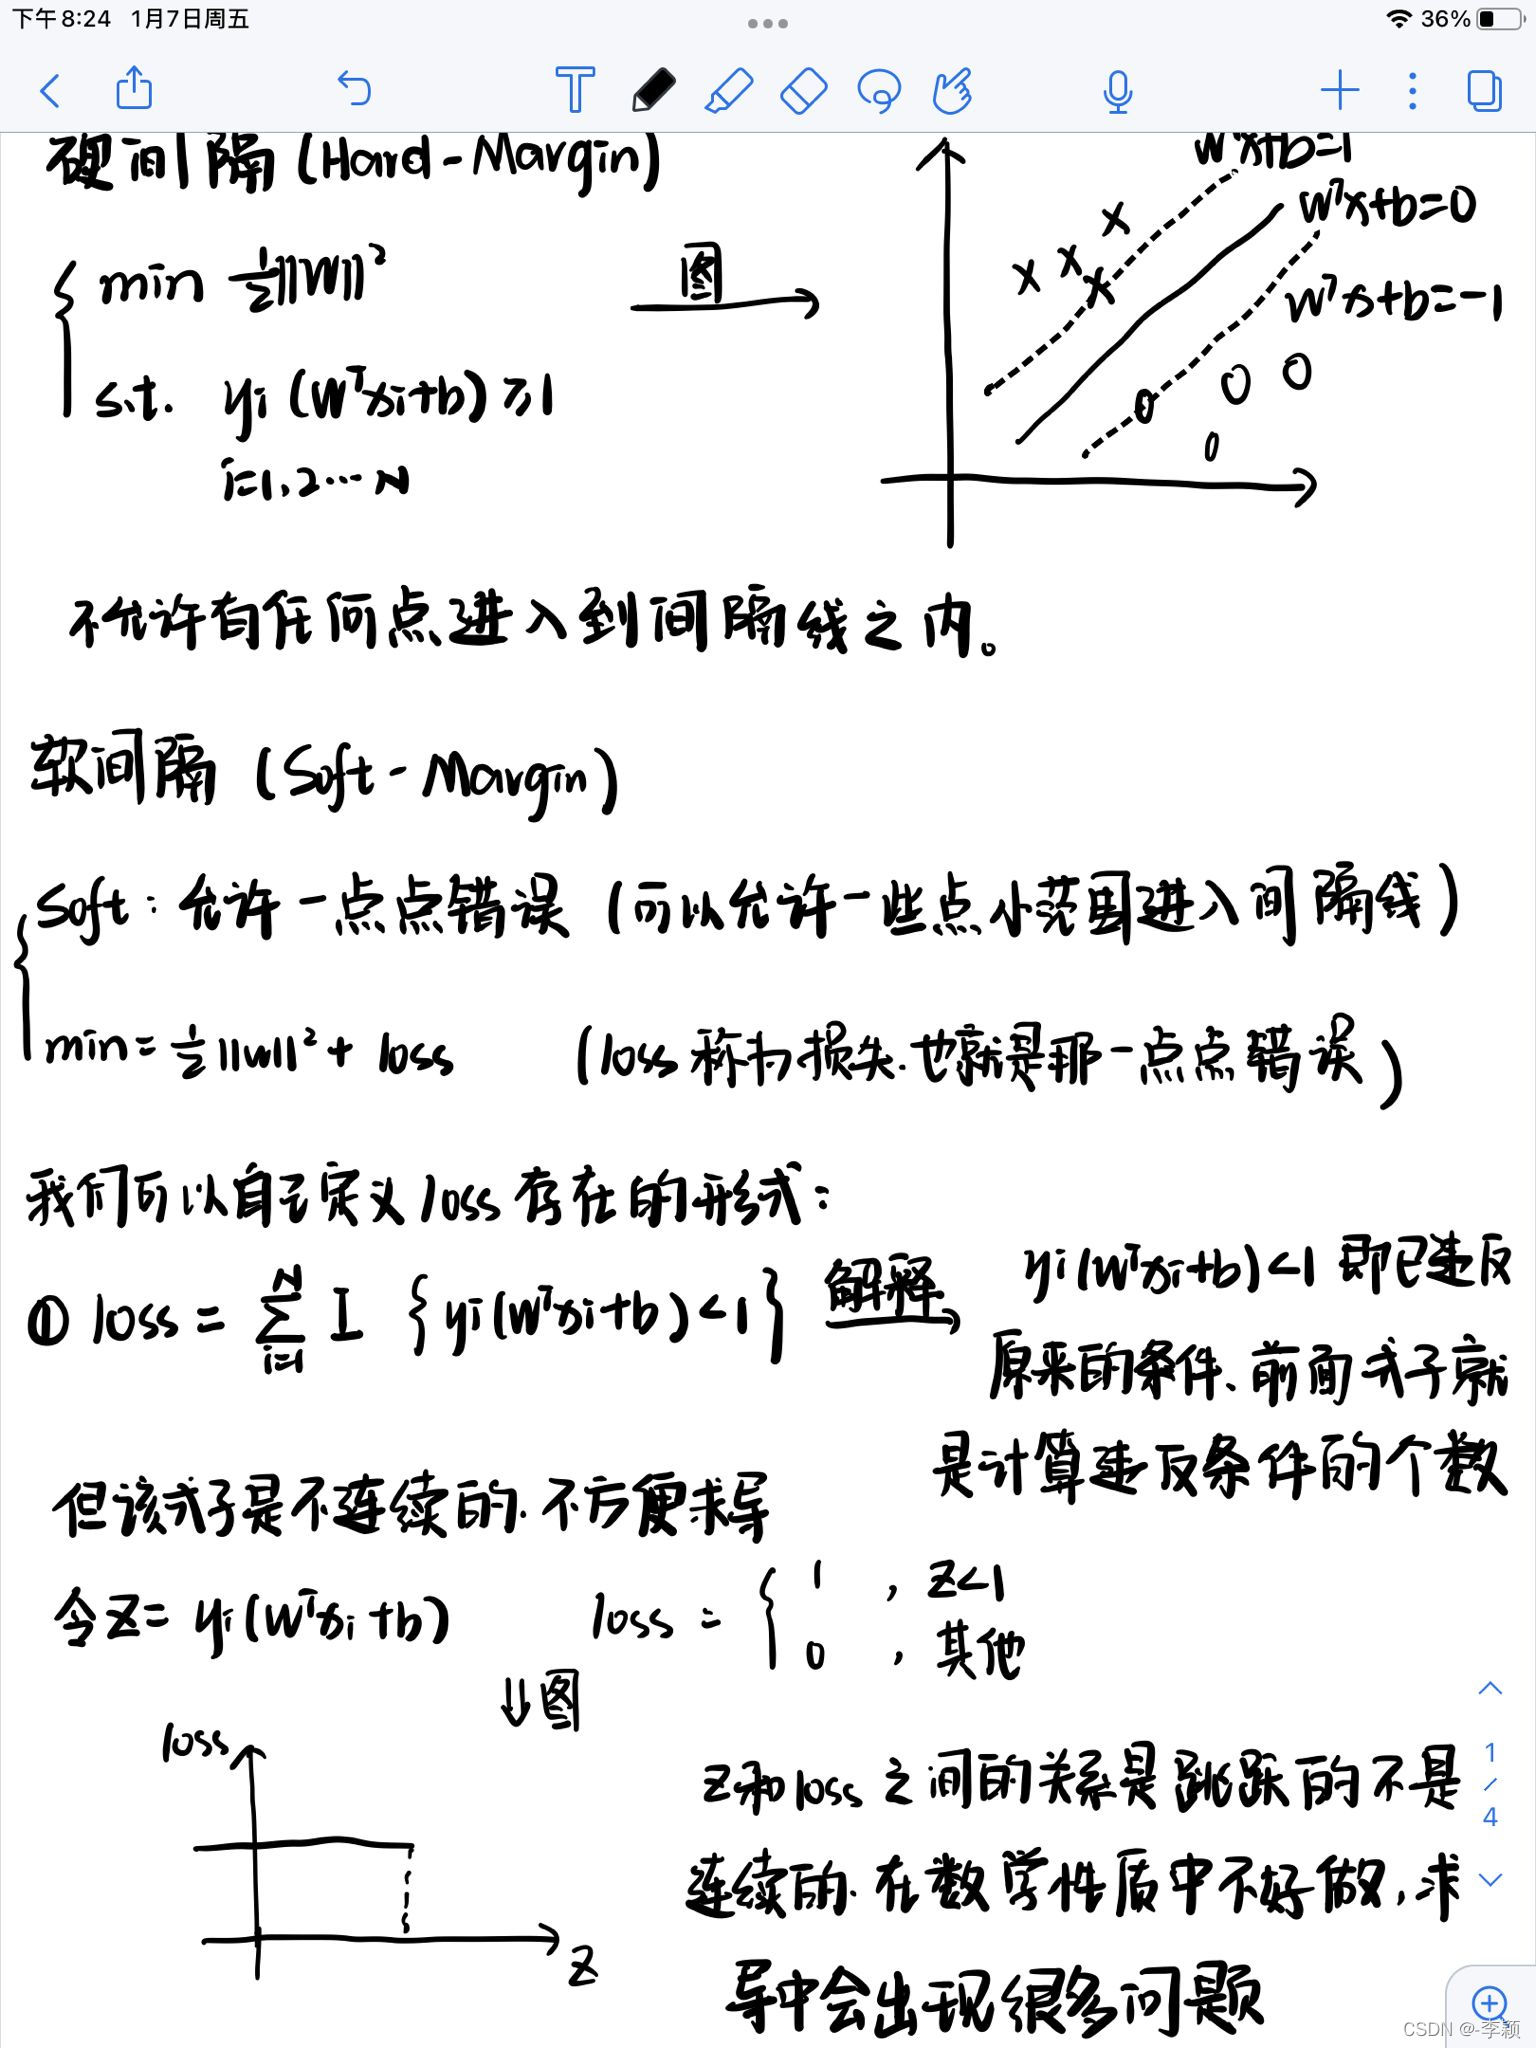 下午8:24 1月7日周五
36%
硬间隔 (Hard-Margin)
wᵀx+b=1
wᵀx+b=0
wᵀx+b=-1
min ½||W||²
图
s.t. yi (Wᵀxi+b) ≥1
i=1,2…N
不允许有任何点进入到间隔线之内。
软间隔 (Soft-Margin)
Soft: 允许一点点错误 (可以允许一些点小范围进入间隔线)
min= ½||w||²+ loss (loss称为损失.也就是那一点点错误)
我们可以自己定义loss存在的形式:
① loss = ∑ᵢ₌₁ᴺ I {yi(Wᵀxi+b)<1} 解释
yi(Wᵀxi+b)<1 即已违反
原来的条件、前面式子就
是计算违反条件的个数
但该式子是不连续的.不方便求导
令Z= yi(Wᵀxi+b) loss = { 1 , Z<1
0 , 其他
图
loss
Z
Z和loss之间的关系是跳跃的不是
连续的.在数学性质中不好做,求
导中会出现很多问题
1
/
4
CSDN @-李颖